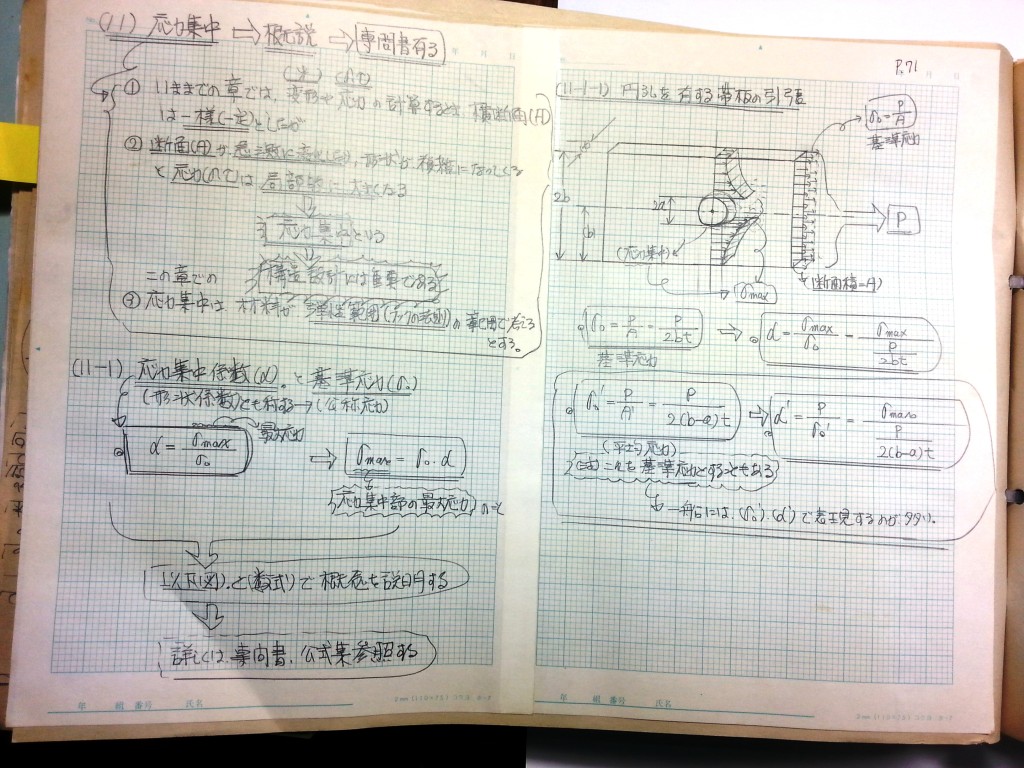 (11) 応力集中 ⇒ 概説 ⇒ 専門書有る
① いままでの章では、変形や応力の計算するときは 横断面(A)
は一様(一定)としたが
② 断面(A)が急激に変化したり、形状が複雑になってくる
と応力は局部的に大きくなる
応力集中という
構造設計には重要である
この章での
③ 応力集中は、材料が弾性範囲(フックの法則)の範囲で考える
とする。
(11-1) 応力集中係数(α)。と基準応力(σ₀)
(形状係数)とも称する→(公称応力)
α = σmax/σ₀
最大応力
⇒ σmax = σ₀·α
応力集中部の最大応力のこと
以下(図)、と(数式)で概念を説明する
詳しくは、専門書、公式集参照する
年 組 番号 氏名
P.71
年 月 日
(11-1-1) 円孔を有する帯板の引張
σ₀ = P/A
基準応力
2b
b
2a
P
(応力集中)
σmax
(断面積=A)
σ₀ = P/A = P/2bt ⇒ α = σmax/σ₀ = σmax/(P/2bt)
基準応力
σ₀' = P/A' = P/2(b-a)t ⇒ α' = P/σ₀' = σmax/(P/2(b-a)t)
(平均応力)
(注)これを基準応力とすることもある
一般には、(σ₀')、(α')で表現するのが多い。
年 組 番号 氏名